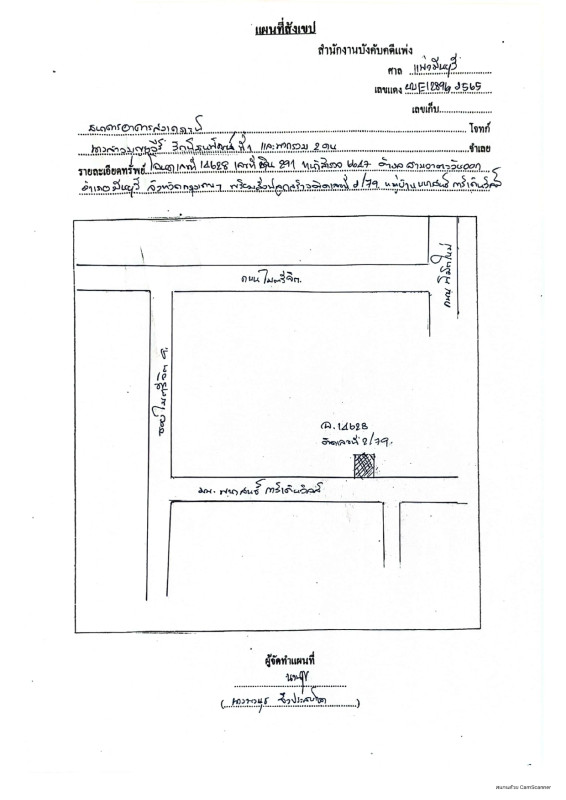 แผนที่สังเขป
สำนักงานบังคับคดีแพ่ง
ศาล แพ่งมีนบุรี
เลขแดง ผบE12896/2565
เลขเก็บ
ธนาคารอาคารสงเคราะห์ โจทก์
ที่ 1 และพวกรวม 2 คน จำเลย
รายละเอียดทรัพย์ โฉนดเลขที่ 14628 เลขที่ดิน 291 หน้าสำรวจ 6647 ตำบล สามวาตะวันออก
อำเภอ มีนบุรี จังหวัดกรุงเทพฯ พร้อมสิ่งปลูกสร้างเลขที่ 2/79 หมู่บ้าน
ถนนไมตรีจิต
ถนน นิมิตใหม่
ซอยไมตรีจิต
ฉ. 14628
ติดเลขที่ 2/79.
มบ. การ์เด้นวิลล์
ผู้จัดทำแผนที่
สแกนด้วย CamScanner